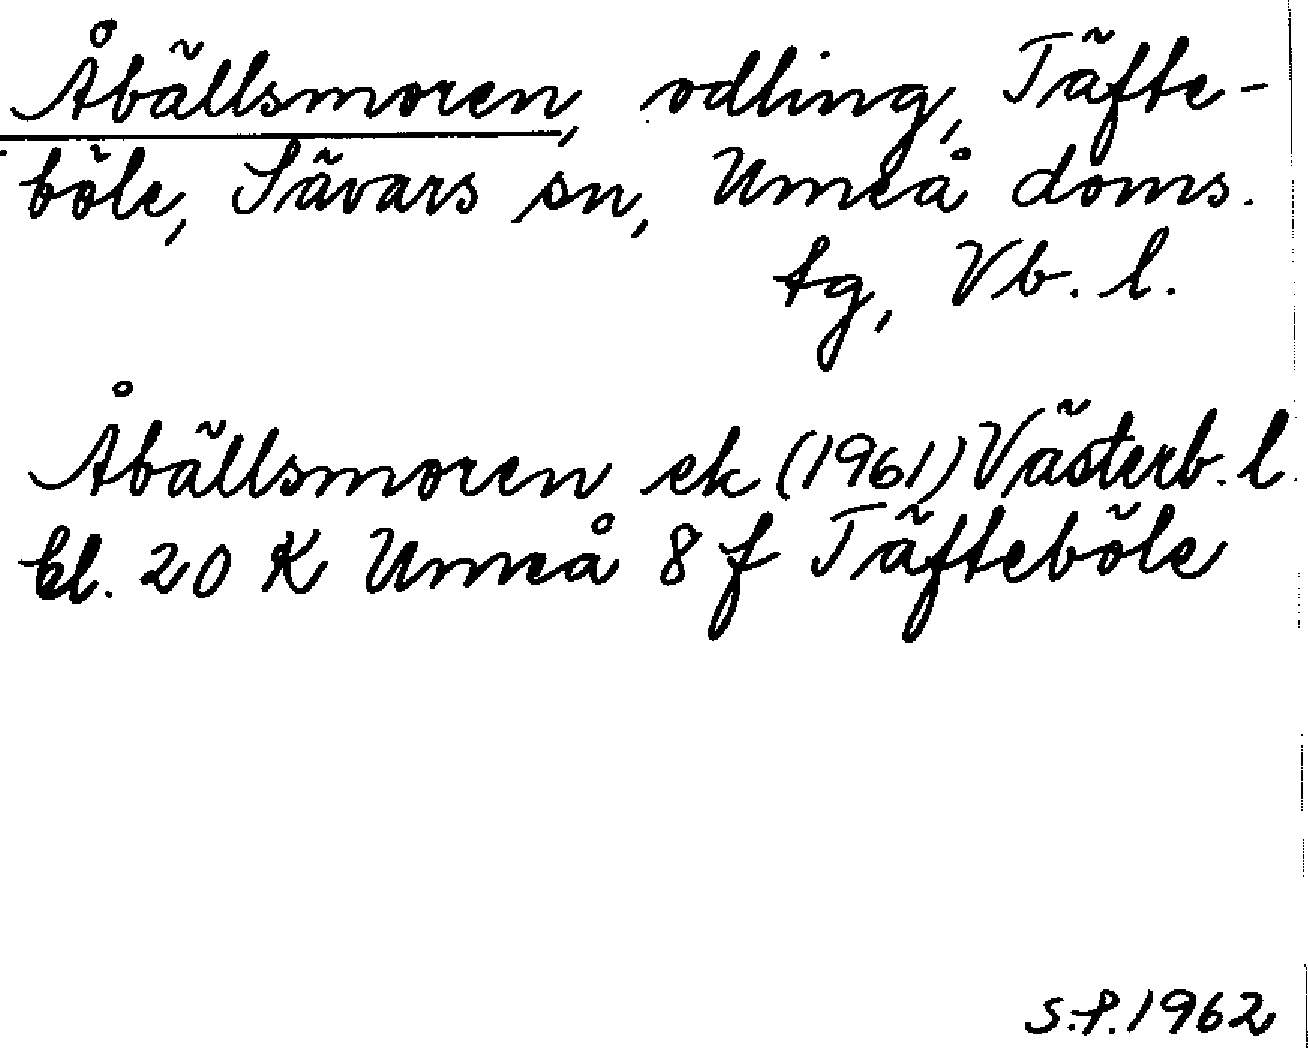 Åbällsmoren, odling, Täfte-
böle, Sävars sn, Umeå doms.
tg, Vb. l.
Åbällsmoren ek (1961) Västerb. l.
bl. 20 K Umeå 8 f Täfteböle
S.P. 1962